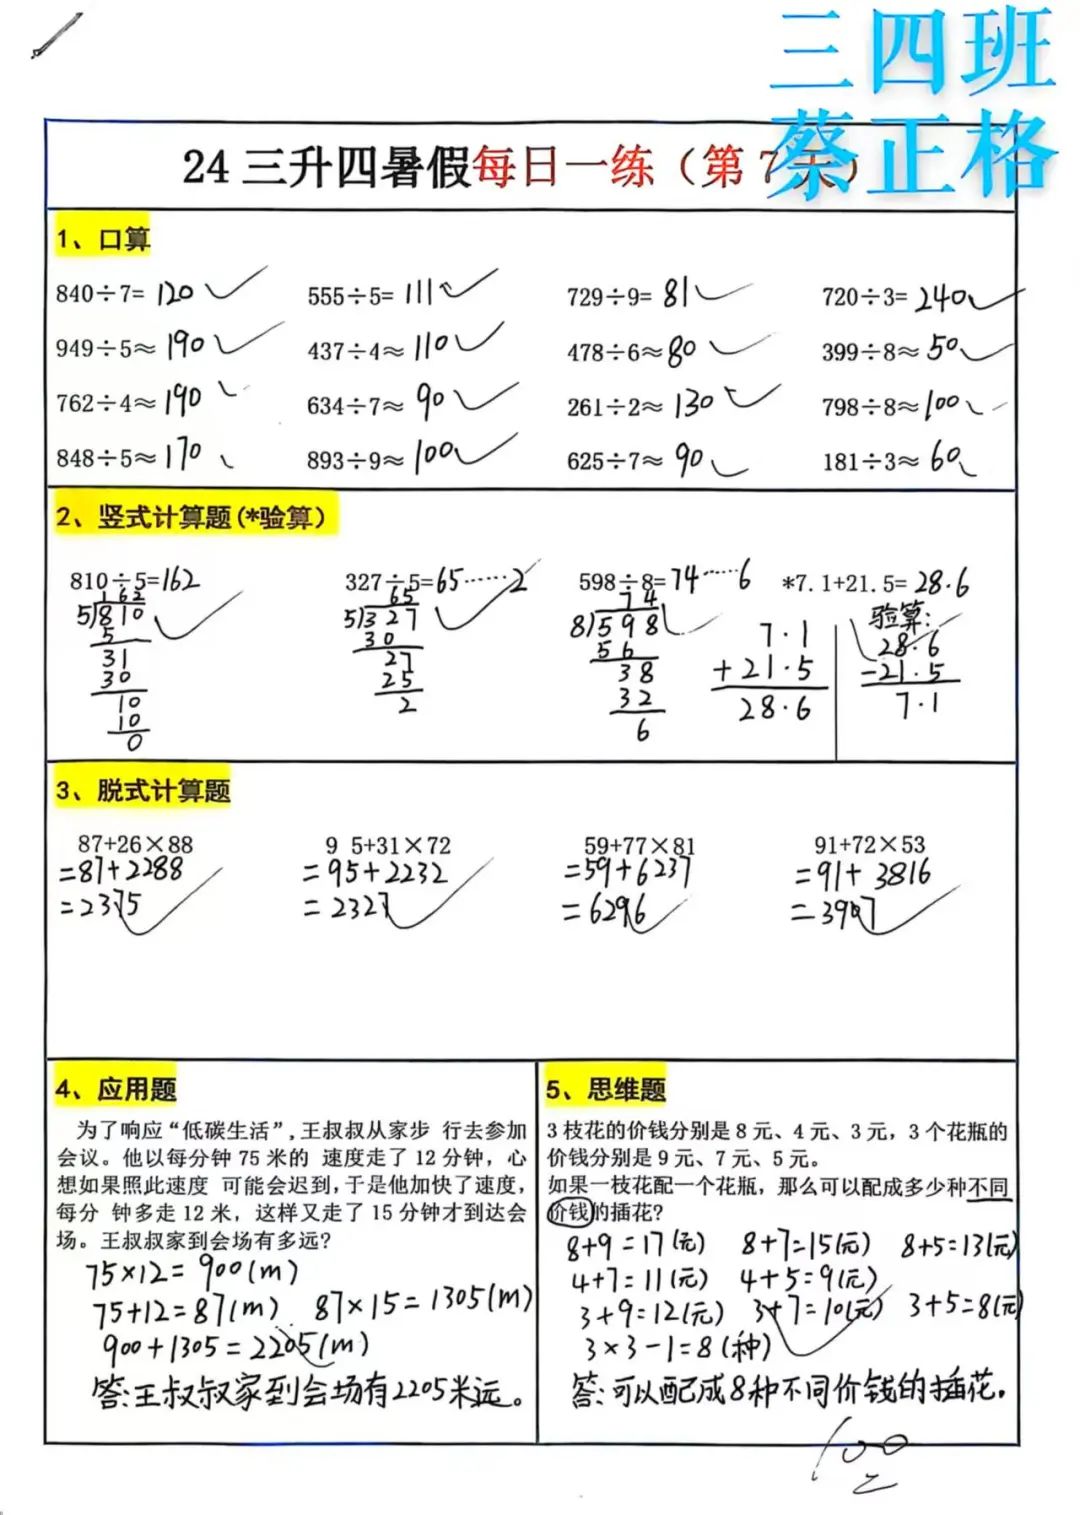 三四班
蔡正格
24 三升四暑假每日一练（第 7 天）
1、口算
840÷7= 120 555÷5= 111 729÷9= 81 720÷3= 240
949÷5≈ 190 437÷4≈ 110 478÷6≈ 80 399÷8≈ 50
762÷4≈ 190 634÷7≈ 90 261÷2≈ 130 798÷8≈ 100
848÷5≈ 170 893÷9≈ 100 625÷7≈ 90 181÷3≈ 60
2、竖式计算题(*验算）
810÷5=162
162
5)810
5
31
30
10
10
0
327÷5=65……2
65
5)327
30
27
25
2
598÷8=74……6
74
8)598
56
38
32
6
*7.1+21.5= 28.6
7.1
+21.5
28.6
验算:
28.6
-21.5
7.1
3、脱式计算题
87+26×88 9 5+31×72 59+77×81 91+72×53
=87+2288 =95+2232 =59+6237 =91+3816
=2375 =2327 =6296 =3907
4、应用题
为了响应“低碳生活”,王叔叔从家步 行去参加
会议。他以每分钟 75 米的 速度走了 12 分钟，心
想如果照此速度 可能会迟到,于是他加快了速度,
每分 钟多走 12 米，这样又走了 15 分钟才到达会
场。王叔叔家到会场有多远?
75×12=900(m)
75+12=87(m) 87×15=1305(m)
900+1305=2205(m)
答:王叔叔家到会场有2205米远。
5、思维题
3 枝花的价钱分别是 8 元、4 元、3 元，3 个花瓶的
价钱分别是 9 元、7 元、5 元。
如果一枝花配一个花瓶，那么可以配成多少种不同
价钱的插花?
8+9=17(元) 8+7=15(元) 8+5=13(元)
4+7=11(元) 4+5=9(元)
3+9=12(元) 3+7=10(元) 3+5=8(元)
3×3-1=8(种)
答:可以配成8种不同价钱的插花。
100